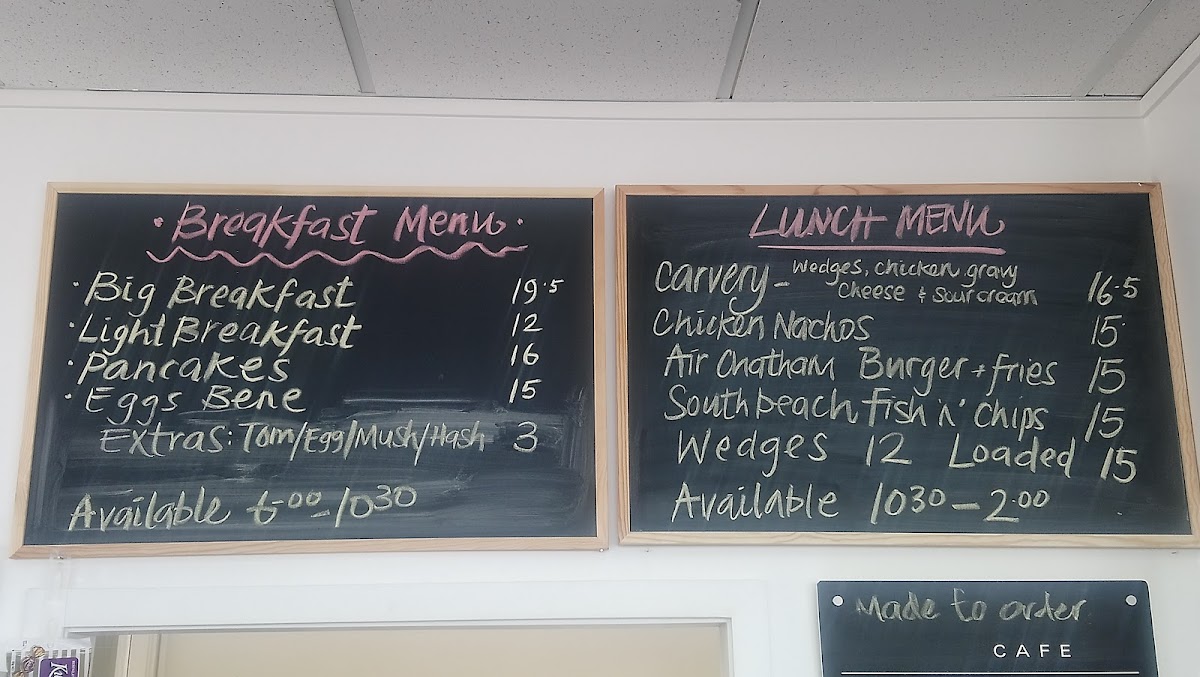 · Breakfast Menu ·
· Big Breakfast 19.5
· Light Breakfast 12
· Pancakes 16
· Eggs Bene 15
Extras: Tom/Egg/Mush/Hash 3
Available 6.00-1030
LUNCH MENU
Carvery - Wedges, chicken gravy
Cheese + Sour cream 16.5
Chicken Nachos 15
Air Chatham Burger + fries 15
South beach fish 'n' chips 15
Wedges 12 Loaded 15
Available 1030 - 2.00
Made to order
CAFE